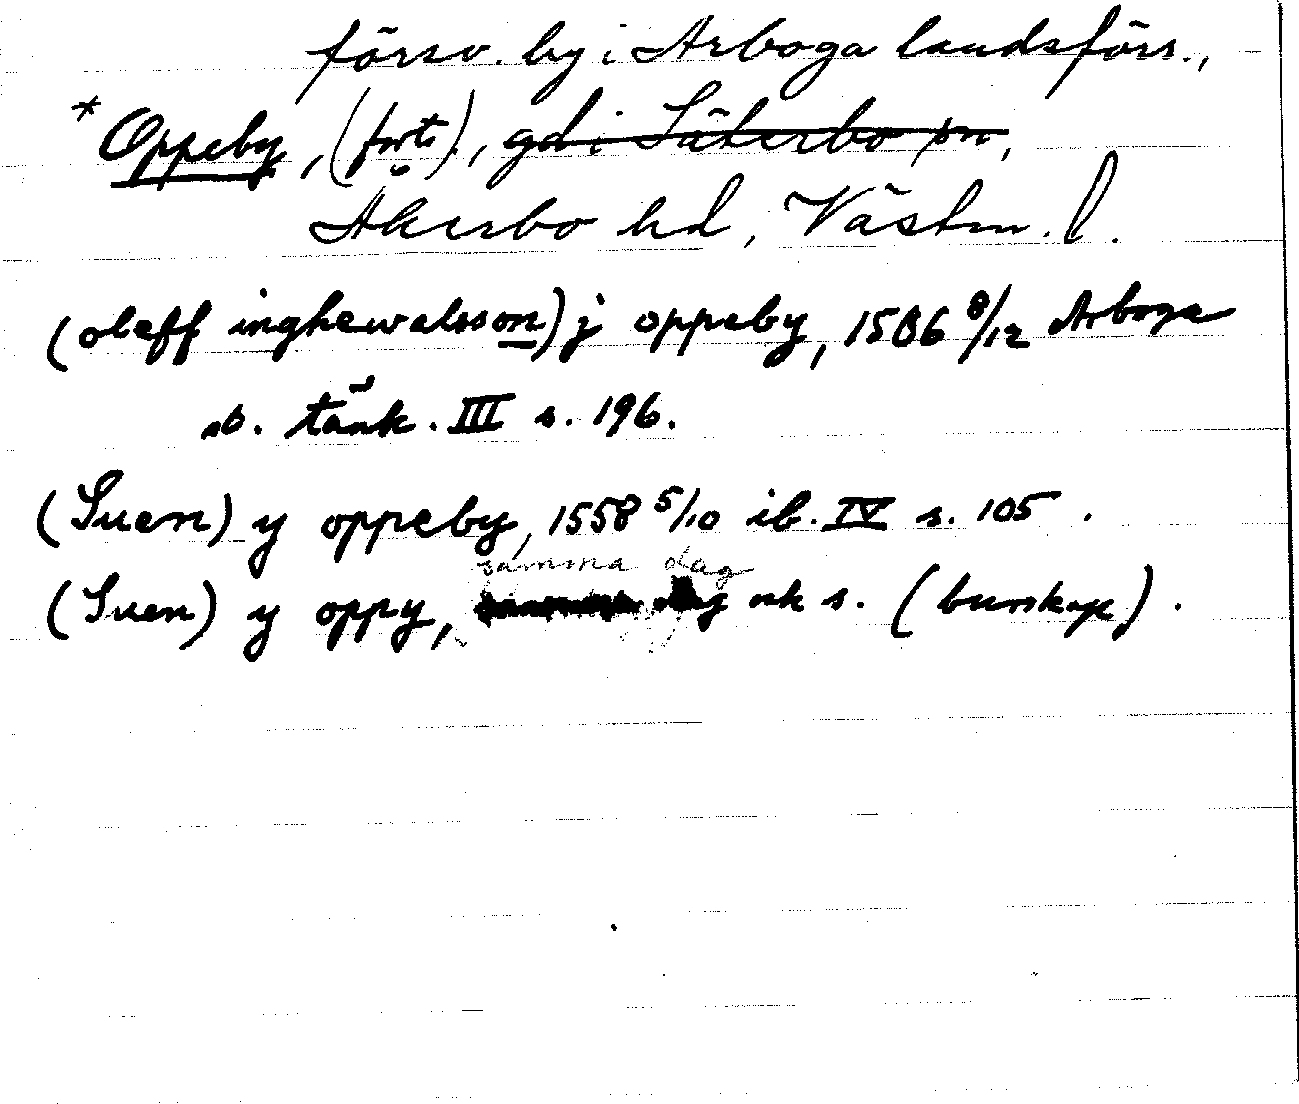 försv. by i Arboga landsförs.,
* Oppeby, (forts.), gd i Säterbo sn,
Åkerbo hd, Västm. l.
(oleff inghewalsson) j oppeby, 1506 8/12 Arboga
sb. tänk. III s. 196.
(Suen) y oppeby, 1558 5/10 ib. IV s. 105.
samma dag
(Suen) y oppy, och s. (burskap).